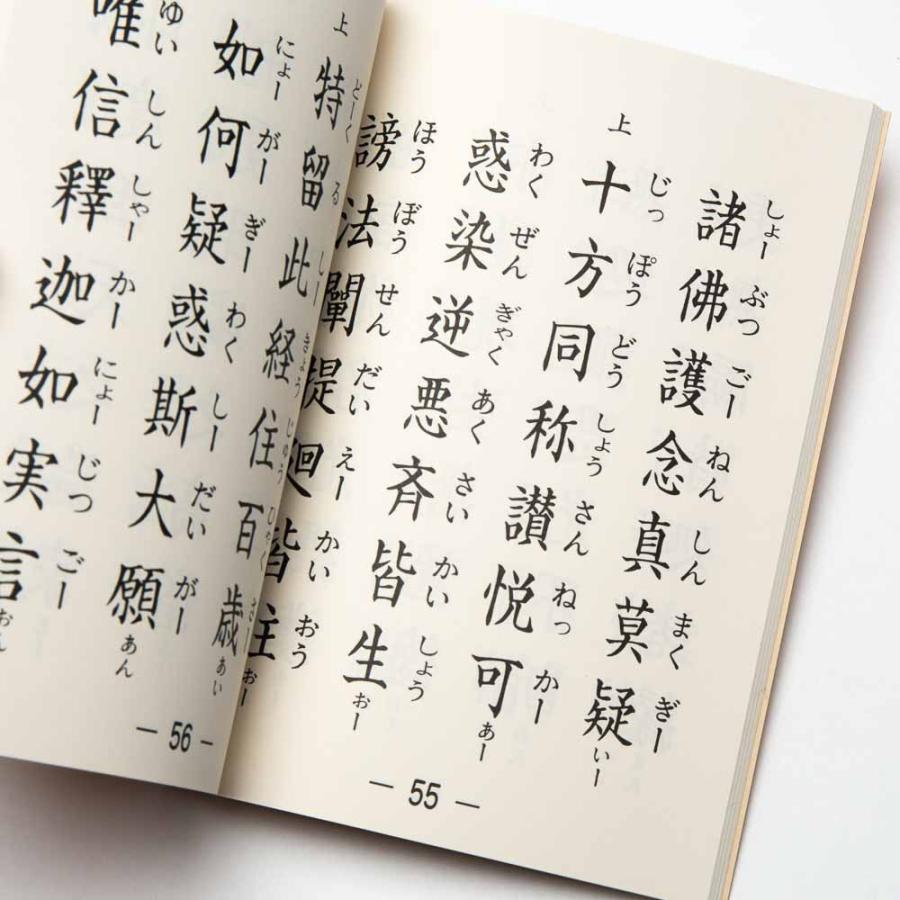 しょー ぶつ ごー ねん しん まく ぎー
諸佛護念真莫疑 いー
じっ ぽう どう しょう さん ねっ かー
上 十方同称讃悦可 あー
わく ぜん ぎゃく あく さい かい しょう
惑染逆悪斉皆生 おー
ほう ぼう せん だい えー かい おう
謗法闡提廻皆往 おー
— 55 —
どーく る しー きょう じゅう ひゃく さー
上 特留此経住百歳 あい
にょー がー ぎー わく しー だい がー
如何疑惑斯大願 あん
ゆい しん しゃー かー にょー じつ ごー
唯信釋迦如実言 おん
— 56 —